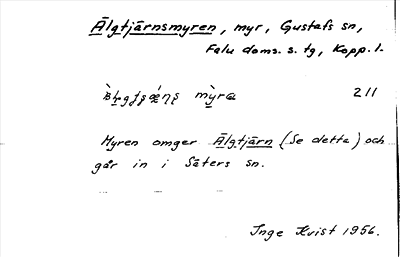 Älgtjärnsmyren, myr, Gustafs sn,
Falu doms. s. tg, Kopp. l.
myra 211
Myren omger Älgtjärn (Se detta) och
går in i Säters sn.
Inge Kvist 1956.